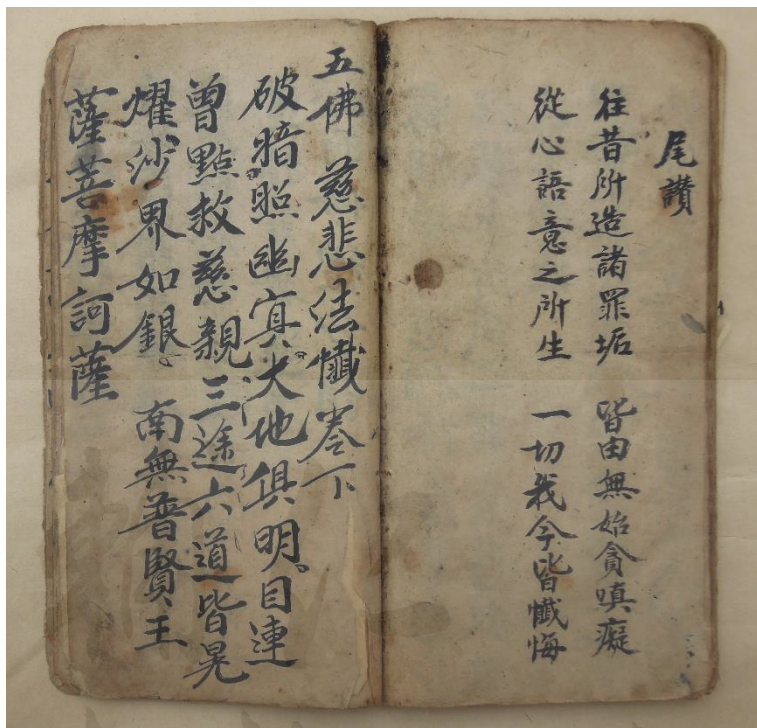 尾讚
往昔所造諸罪垢 皆由無始貪嗔癡
從心語意之所生 一切我今皆懺悔
五佛 慈悲法懺卷下
破暗照幽冥。大地俱明。目連
曾點救慈親三途六道皆晃
耀。沙界如銀。 南無普賢王
薩菩摩訶薩